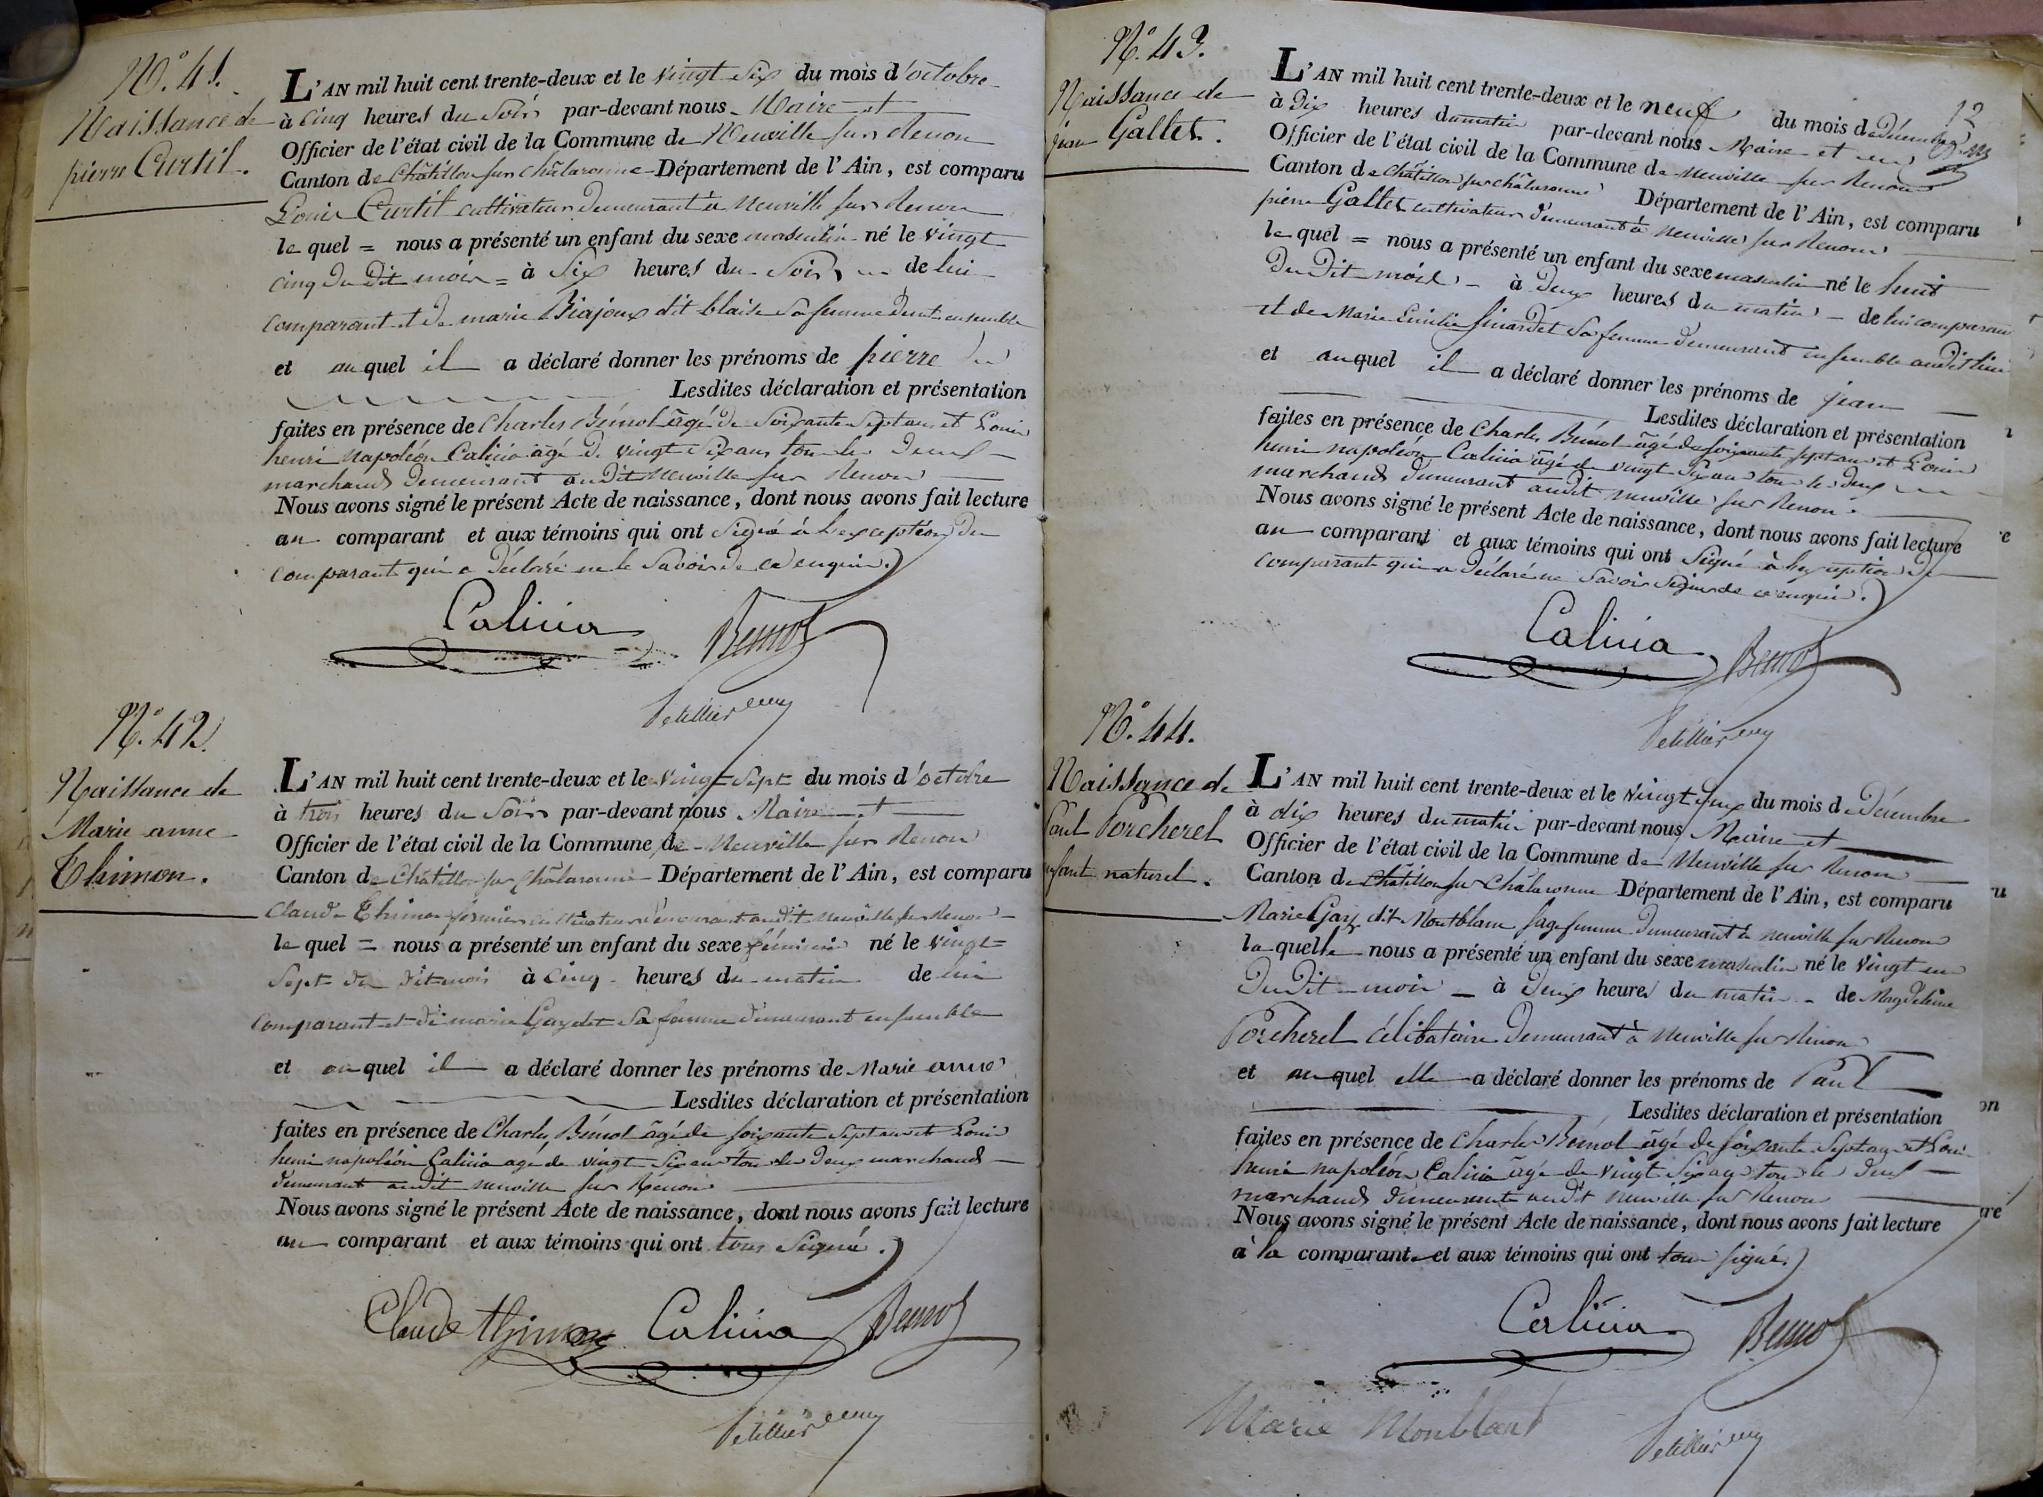 N.° 41.
Naissance de
pierre Curtil.
L'AN mil huit cent trente-deux et le vingt six du mois d'octobre
à cinq heures du soir par-devant nous Maire et
Officier de l'état civil de la Commune de Neuville sur Renon
Canton de Châtillon sur Châlaronne Département de l'Ain, est comparu
Louis Curtil cultivateur demeurant à Neuville sur Renon
le quel = nous a présenté un enfant du sexe masculin né le vingt
cinq du dit mois = à six heures du soir de lui
comparant et de marie Biajoux dit blaise sa femme demt. ensemble
et auquel il a déclaré donner les prénoms de pierre
Lesdites déclaration et présentation
faites en présence de Charles Bémol âgé de soixante sept ans et Louis
henri napoléon Calicia âgé de vingt six ans tous les deux
marchands demeurant audit Neuville sur Renon
Nous avons signé le présent Acte de naissance, dont nous avons fait lecture
au comparant et aux témoins qui ont signé à l'exception du
comparant qui a déclaré ne le savoir de ce enquis.
Calicia Bemol
Petellier
N.° 42.
Naissance de
Marie anne
Thimon.
L'AN mil huit cent trente-deux et le vingt sept du mois d'octobre
à trois heures du soir par-devant nous Maire et
Officier de l'état civil de la Commune de Neuville sur Renon
Canton de Châtillon sur Châlaronne Département de l'Ain, est comparu
Claude Thimon fermier cultivateur demeurant audit Neuville sur Renon
le quel = nous a présenté un enfant du sexe féminin né le vingt
sept du dit mois à cinq heures du matin de lui
comparant et de marie Gaydet sa femme demeurant ensemble
et auquel il a déclaré donner les prénoms de Marie anne
Lesdites déclaration et présentation
faites en présence de Charles Bémol âgé de soixante sept ans et Louis
henri napoléon Calicia agé de vingt six ans tous les deux marchands
demeurant audit neuville sur Renon
Nous avons signé le présent Acte de naissance, dont nous avons fait lecture
au comparant et aux témoins qui ont tous signé.
Claude thimon Calicia Bemol
Petellier
12
N.° 43.
Naissance de
jean Gallet.
L'AN mil huit cent trente-deux et le neuf du mois de décembre
à dix heures du matin par-devant nous Maire et
Officier de l'état civil de la Commune de Neuville sur Renon
Canton de Châtillon sur Châlaronne Département de l'Ain, est comparu
pierre Gallet cultivateur demeurant à Neuville sur Renon
le quel = nous a présenté un enfant du sexe masculin né le huit
du dit mois à deux heures du matin de lui comparant
et de Marie Emilie Sinardet sa femme demeurant ensemble audit lieu
et auquel il a déclaré donner les prénoms de jean
Lesdites déclaration et présentation
faites en présence de Charles Bémol âgé de soixante sept ans et Louis
henri napoléon Calicia âgé de vingt six ans tous les deux
marchands demeurant audit neuville sur Renon.
Nous avons signé le présent Acte de naissance, dont nous avons fait lecture
au comparant et aux témoins qui ont signé à l'exception du
comparant qui a déclaré ne savoir signer de ce enquis.
Calicia Bemol
Petellier
N.° 44.
Naissance de
Paul Porcherel
enfant naturel.
L'AN mil huit cent trente-deux et le vingt deux du mois de Décembre
à dix heures du matin par-devant nous Maire et
Officier de l'état civil de la Commune de Neuville sur Renon
Canton de Châtillon sur Châlaronne Département de l'Ain, est comparu
Marie Gay dit Montblanc sage femme demeurant à neuville sur Renon
la quelle nous a présenté un enfant du sexe masculin né le vingt un
du dit mois à deux heures du matin de Magdeleine
Porcherel célibataire demeurant à Neuville sur Renon
et auquel elle a déclaré donner les prénoms de Paul
Lesdites déclaration et présentation
faites en présence de Charles Bémol âgé de soixante sept ans et Louis
henri napoléon Calicia âgé de vingt six ans tous les deux
marchands demeurants audit Neuville sur Renon
Nous avons signé le présent Acte de naissance, dont nous avons fait lecture
à la comparante et aux témoins qui ont tous signé.
Calicia Bemol
Marie Monblant
Petellier